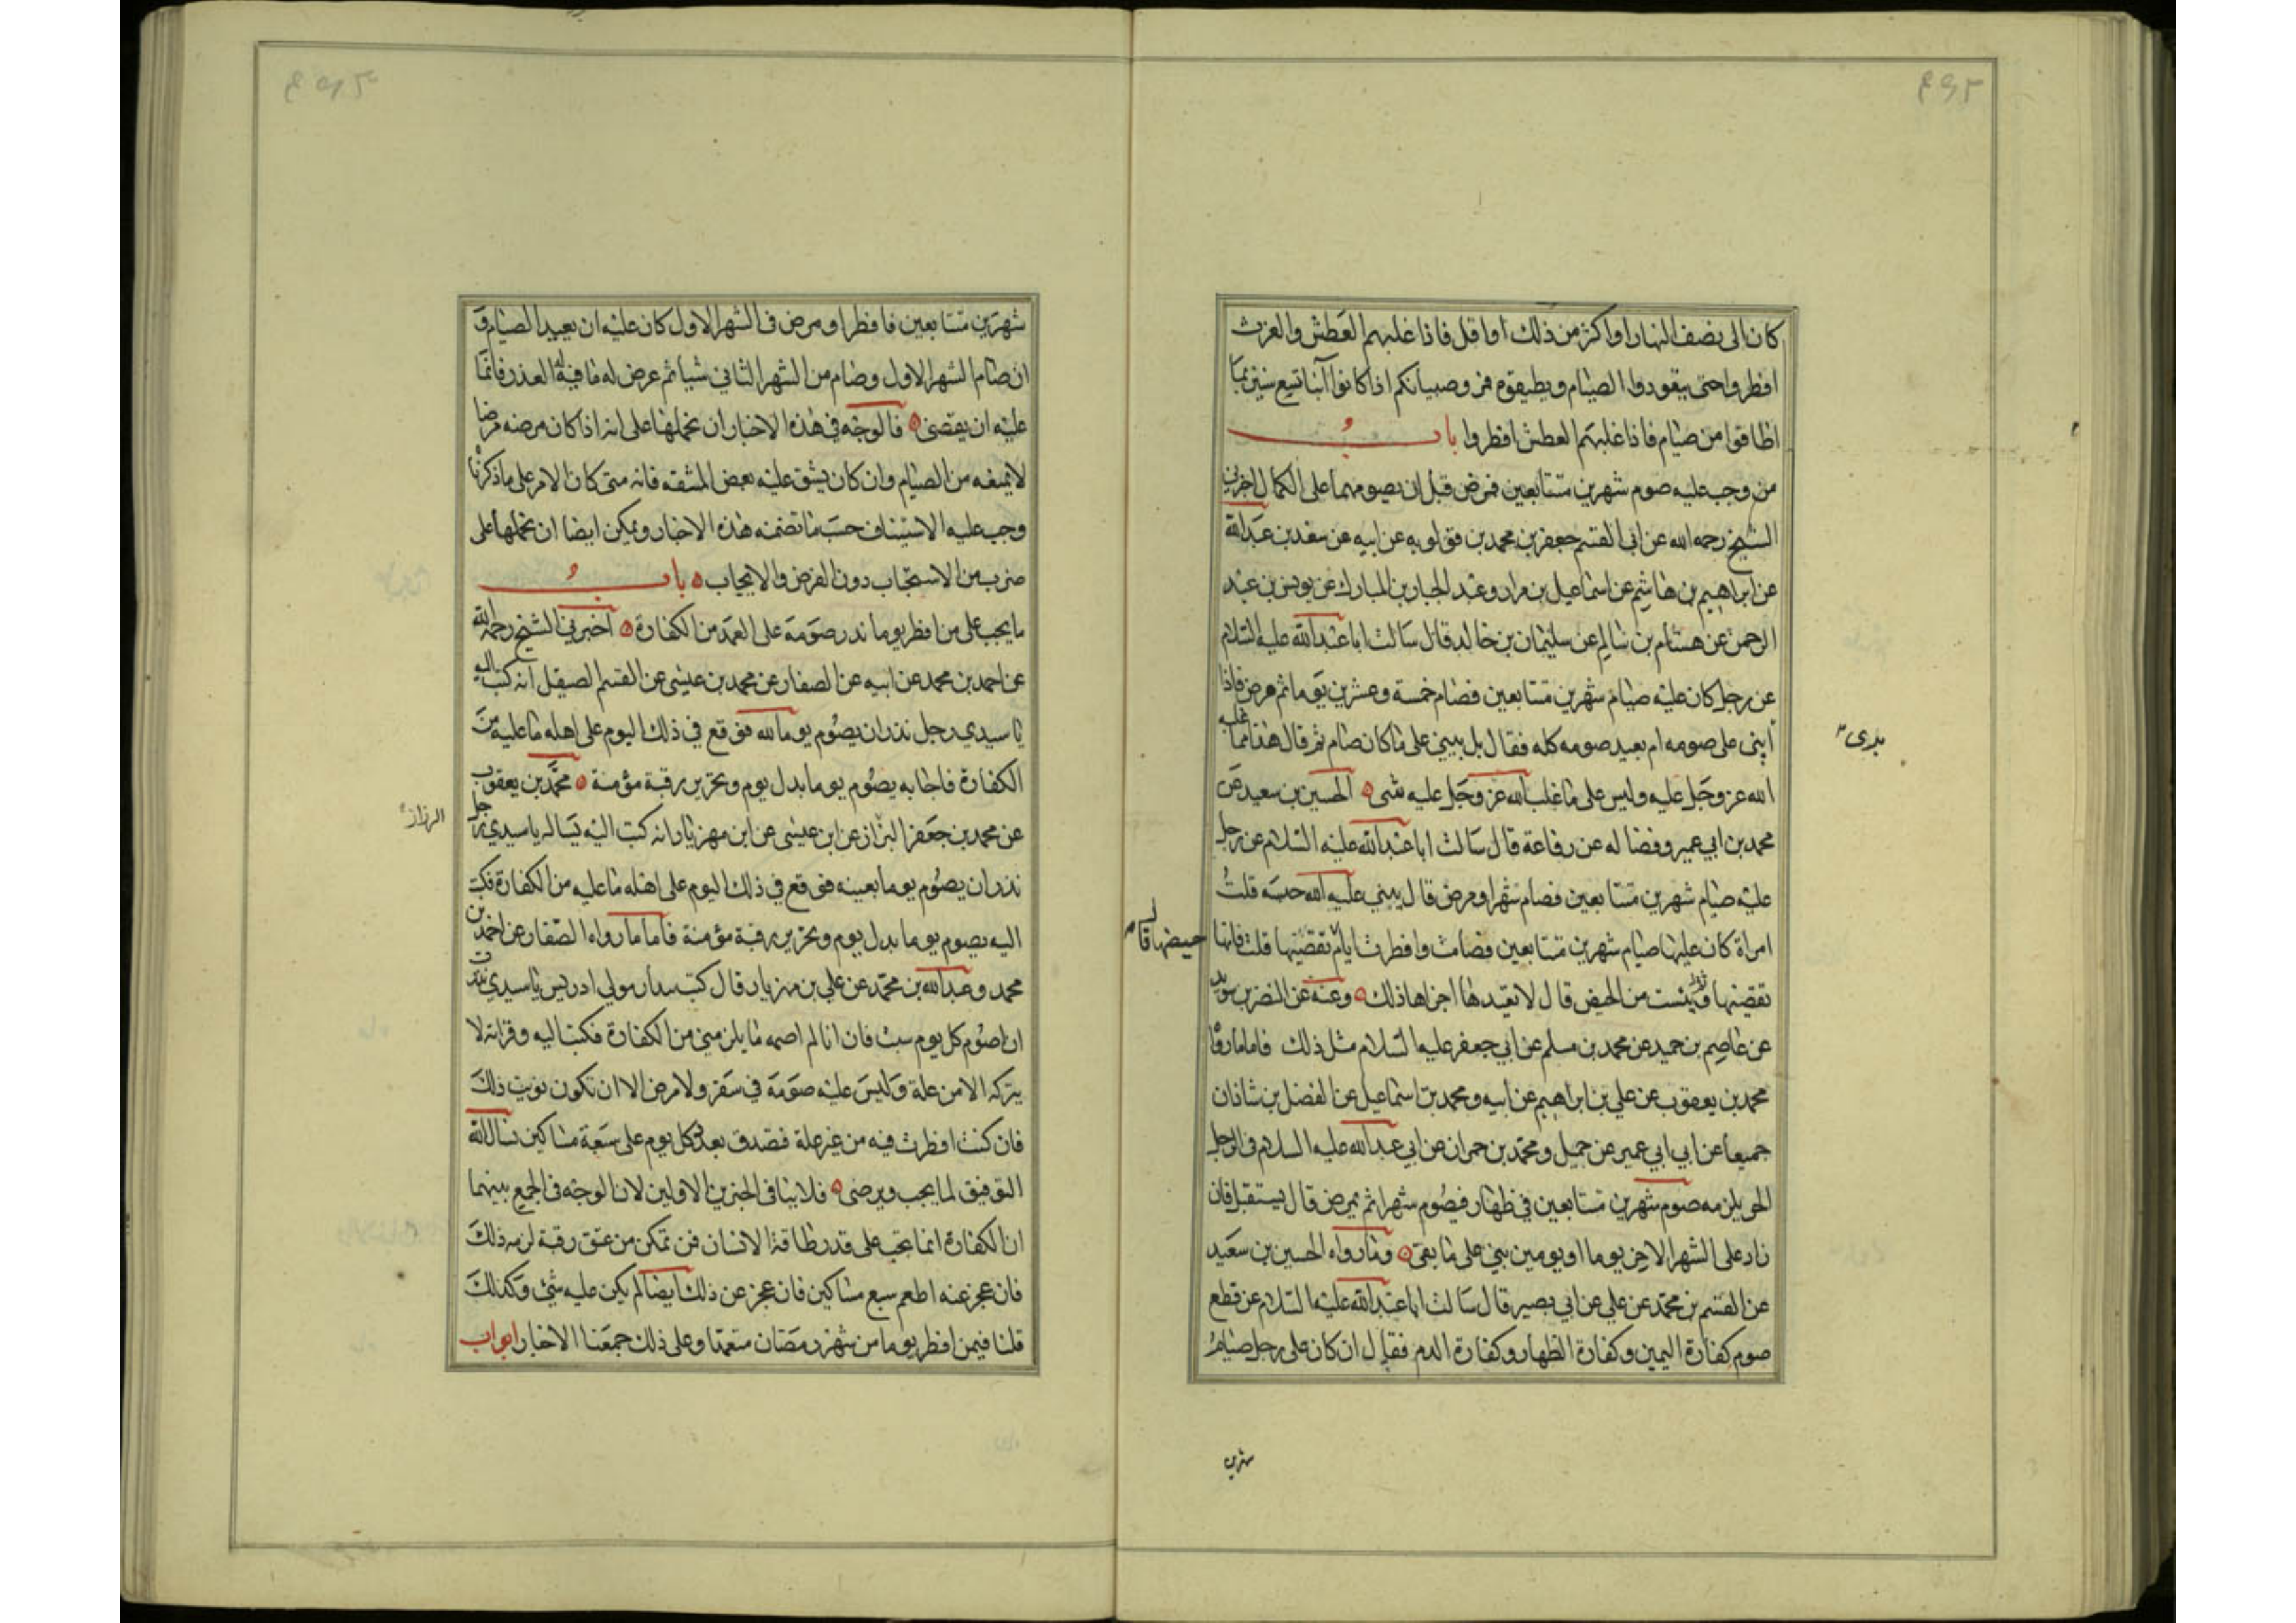 كان الى نصف النهار او اكثر من ذلك او اقل فاذا غلبهم العطش والغرث
افطروا حتى يتعودوا الصيام ويطيقوه فمروا صبيانكم اذا كانوا ابنا تسع سنين بما
اطاقوا من صيام فاذا غلبهم العطش افطروا باب
من وجب عليه صوم شهرين متتابعين فمرض قبل ان يصومهما على الكمال اخبرني
الشيخ رحمه الله عن ابي القسم جعفر بن محمد بن قولويه عن ابيه عن سعد بن عبدالله
عن ابراهيم بن هاشم عن اسماعيل بن مرار وعبد الجبار بن المبارك عن يونس بن عبد
الرحمن عن هشام بن سالم عن سليمان بن خالد قال سالت ابا عبدالله عليه السلام
عن رجل كان عليه صيام شهرين متتابعين فصام خمسة وعشرين يوما ثم مرض فاذا
ابنى على صومه ام يعيد صومه كله فقال بل يبني على ما كان صام ثم قال هذا مما غلبه
برى
الله عز وجل عليه وليس على ما غلب الله عز وجل عليه شى الحسين بن سعيد عن
محمد بن ابي عمير وفضاله عن رفاعة قال سالت ابا عبدالله عليه السلام عن رجل
عليه صيام شهرين متتابعين فصام شهرا ومرض قال يبني عليه الله حبسه قلت
امراة كان عليها صيام شهرين متتابعين فصامت وافطرت ايام تقضيها قلت فانها
حيضها قال
تقضيها ثم يئست من الحيض قال لا تعيدها اجزاها ذلك وعنه عن النضر بن سويد
عن عاصم بن حميد عن محمد بن مسلم عن ابي جعفر عليه السلام مثل ذلك فاما ما رواه
محمد بن يعقوب عن علي بن ابراهيم عن ابيه ومحمد بن اسماعيل عن الفضل بن شاذان
جميعا عن ابي ابي عمير عن جميل ومحمد بن حمران عن ابي عبدالله عليه السلام في الرجل
الحر يلزمه صوم شهرين متتابعين في ظهار فيصوم شهرا ثم يمرض قال يستقبل فان
زاد على الشهر الاخر يوما او يومين بني على ما بقى وما رواه الحسين بن سعيد
عن القسم بن محمد عن علي عن ابي بصير قال سالت ابا عبدالله عليه السلام عن قطع
صوم كفارة اليمين وكفارة الظهار وكفارة الدم فقال ان كان على رجل صيام
شهرين
شهرين متتابعين فافطر او مرض في الشهر الاول كان عليه ان يعيد الصيام و
ان صام الشهر الاول وصام من الشهر الثاني شيا ثم عرض له ما فيه له العذر فانما
عليه ان يقضى فالوجه في هذه الاخبار ان نحملها على انه اذا كان مرضه مرضا
لا يمنعه من الصيام وان كان يشق عليه بعض المشقه فانه متى كان الامر على ما ذكرنا
وجب عليه الاستيناف حسب ما تضمنه هذه الاخبار ويمكن ايضا ان نحملها على
ضرب من الاستحباب دون الفرض والايجاب باب
ما يجب على من افطر يوما نذر صومه على العمد من الكفارة اخبرني الشيخ رحمه الله
عن احمد بن محمد عن ابيه عن الصفار عن محمد بن عيسى عن القسم الصيقل انه كتب اليه
يا سيدي رجل نذر ان يصوم يوما لله فوقع في ذلك اليوم على اهله ما عليه من
الكفارة فاجابه يصوم يوما بدل يوم وتحرير رقبة مؤمنة محمد بن يعقوب
عن محمد بن جعفر البزاز عن ابن عيسى عن ابن مهزيار انه كتب اليه يساله يا سيدي رجل
الرزاز
نذر ان يصوم يوما بعينه فوقع في ذلك اليوم على اهله ما عليه من الكفارة فكتب
اليه يصوم يوما بدل يوم وتحرير رقبة مؤمنة فاما ما رواه الصفار عن احمد بن
محمد وعبدالله بن محمد عن علي بن مهزيار قال كتب بندار مولى ادريس يا سيدي نذرت
ان اصوم كل يوم سبت فان انا لم اصمه ما يلزمني من الكفارة فكتب اليه وقراته لا
يتركه الا من علة وليس عليه صومه في سفر ولا مرض الا ان تكون نويت ذلك
فان كنت افطرت فيه من غير علة فتصدق بعدد كل يوم على سبعة مساكين نسال الله
التوفيق لما يحب ويرضى فلا ينافي الخبرين الاولين لان الوجه في الجمع بينهما
ان الكفارة انما يجب على قدر طاقة الانسان فمن تمكن من عتق رقبة لزمه ذلك
فان عجز عنه اطعم سبع مساكين فان عجز عن ذلك ايضا لم يكن عليه شي وكذلك
قلنا فيمن افطر يوما من شهر رمضان متعمدا وعلى ذلك جمعنا الاخبار ابواب